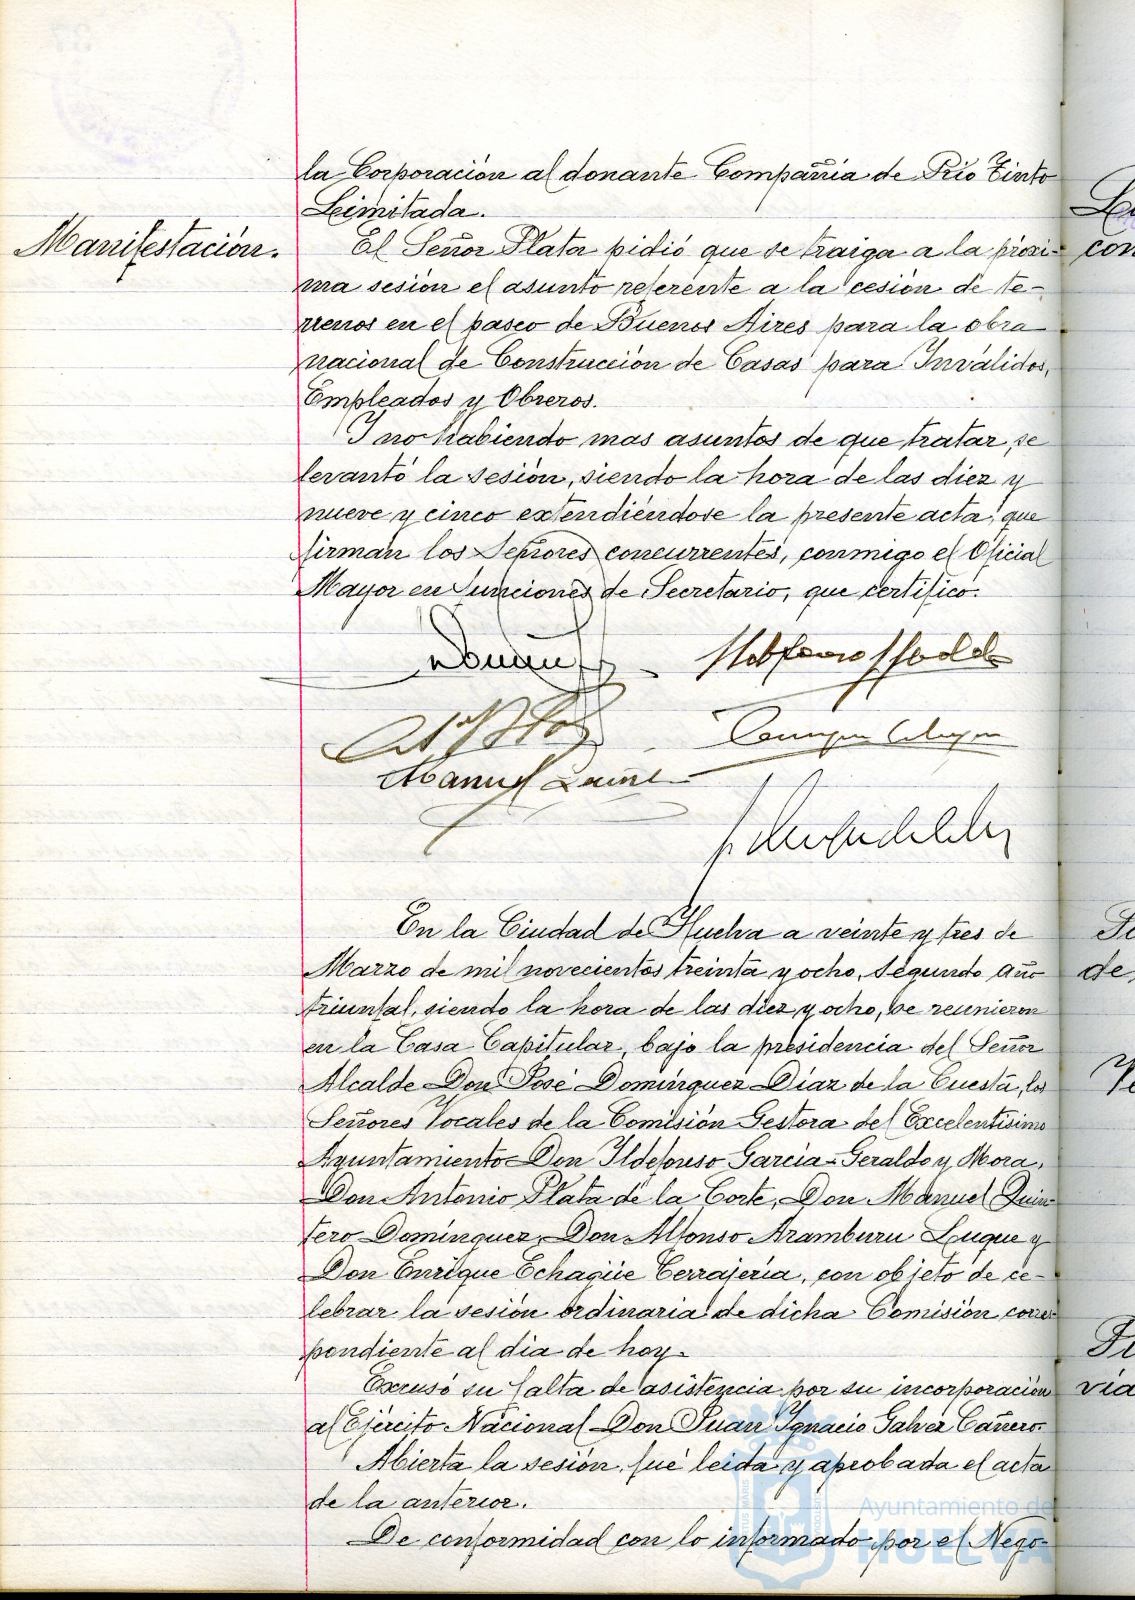 la Corporación al donante Compañia de Rio Tinto
Limitada.
Manifestación.
El Señor Plata pidió que se traiga a la proxi-
ma sesión el asunto referente a la cesión de te-
rrenos en el paseo de Buenos Aires para la obra
nacional de Construcción de Casas para Inválidos,
Empleados y Obreros.
I no habiendo mas asuntos de que tratar, se
levantó la sesión, siendo la hora de las diez y
nueve y cinco extendiéndose la presente acta, que
firman los Señores concurrentes, conmigo el Oficial
Mayor en funciones de Secretario, que certifico.
Manuel
En la Ciudad de Huelva a veinte y tres de
Marzo de mil novecientos treinta y ocho, Segundo Año
triunfal, siendo la hora de las diez y ocho, se reunieron
en la Casa Capitular, bajo la presidencia del Señor
Alcalde Don José Domínguez Díaz de la Cuesta, los
Señores Vocales de la Comisión Gestora del Excelentísimo
Ayuntamiento Don Ildefonso Garcia-Geraldo y Mora,
Don Antonio Plata de la Corte, Don Manuel Quin-
tero Domínguez, Don Alfonso Aramburu Luque y
Don Enrique Echagüe Cerrajería, con objeto de ce-
lebrar la sesión ordinaria de dicha Comisión corres-
pondiente al dia de hoy.
Excusó su falta de asistencia por su incorporación
al Ejército Nacional Don Juan Ignacio Galvez Cañero.
Abierta la sesión, fué leida y aprobada el acta
de la anterior.
De conformidad con lo informado por el Nego-
con
de
via
Ayuntamiento de
HUELVA